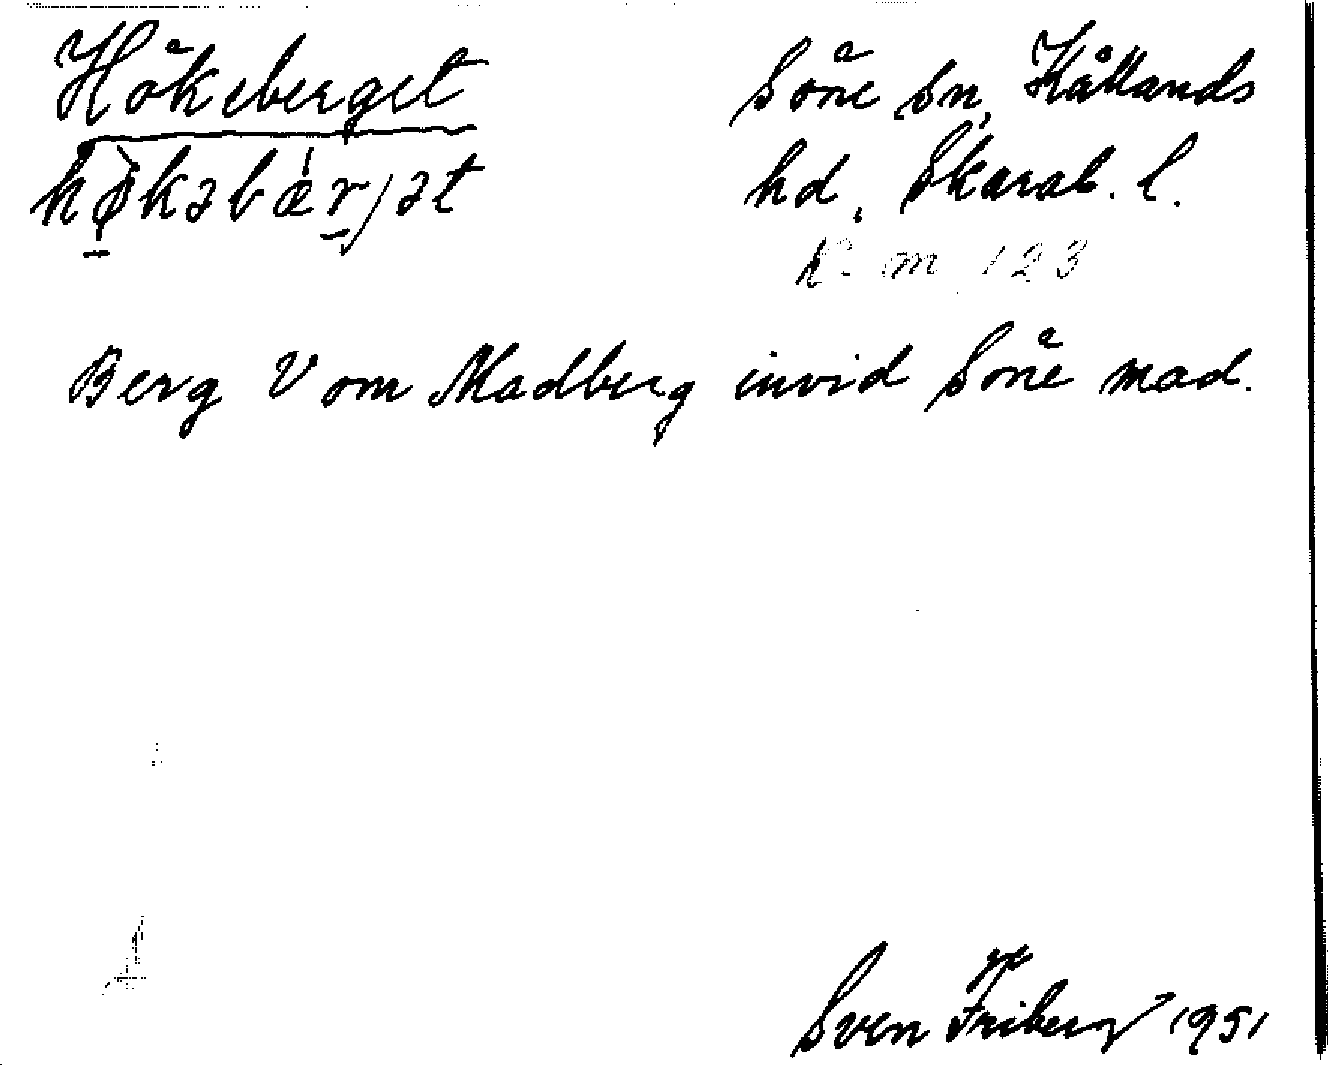 Hökeberget
hø̀kəbǽrjət
Söne sn, Kållands
hd, Skarab. l.
K. m 123
Berg V om Madberg invid Söne mad.
Sven Friberg 1951